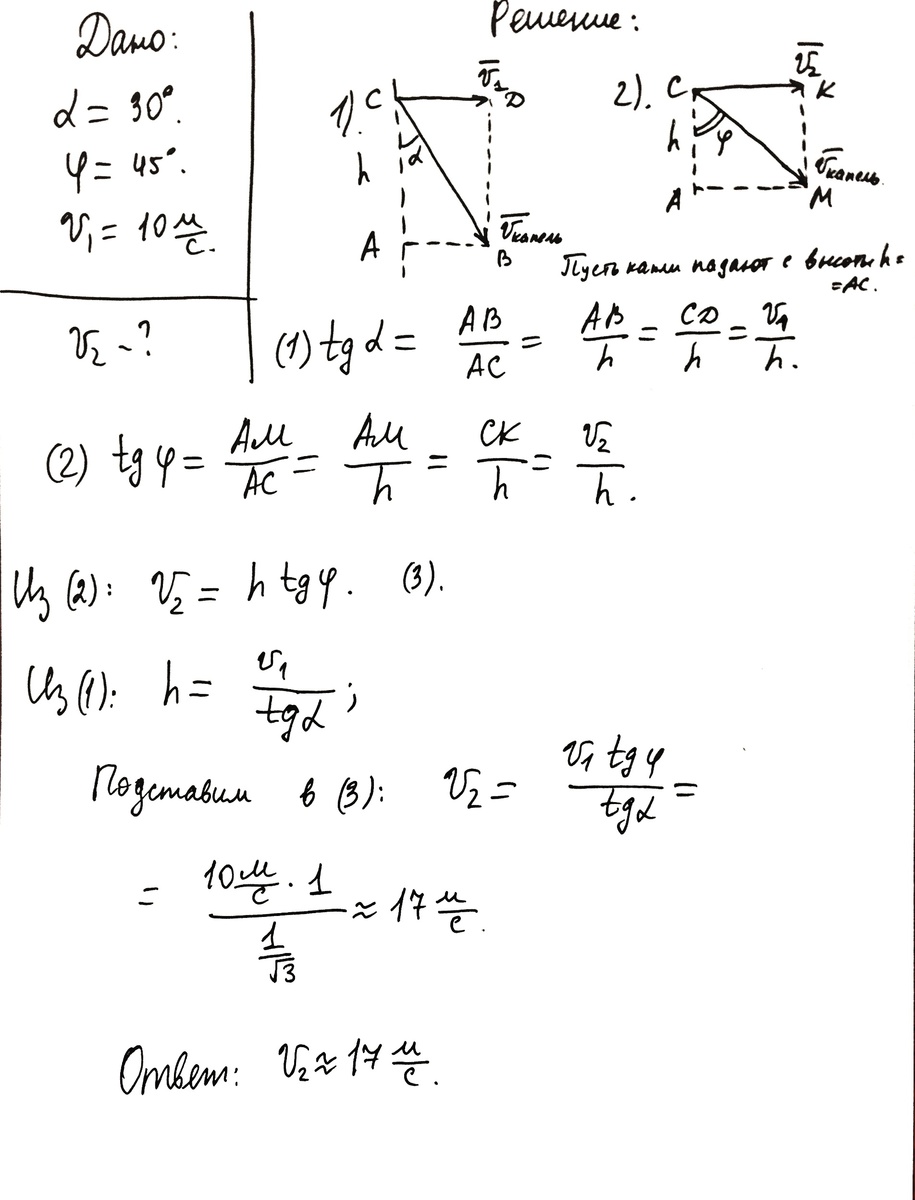 Дано:
α = 30°.
φ = 45°.
v₁ = 10 м/с.
v₂ - ?
Решение:
1). C v̅₁ D
h α
A v̅капель B
2). C v̅₂ K
h φ
A v̅капель M
Пусть капли падают с высоты h =
= AC.
(1) tg α = AB/AC = AB/h = CD/h = v₁/h.
(2) tg φ = AM/AC = AM/h = CK/h = v₂/h.
Из (2): v₂ = h tg φ. (3).
Из (1): h = v₁/tg α;
Подставим в (3): v₂ = v₁ tg φ/tg α =
= (10 м/с · 1)/(1/√3) ≈ 17 м/с.
Ответ: v₂ ≈ 17 м/с.